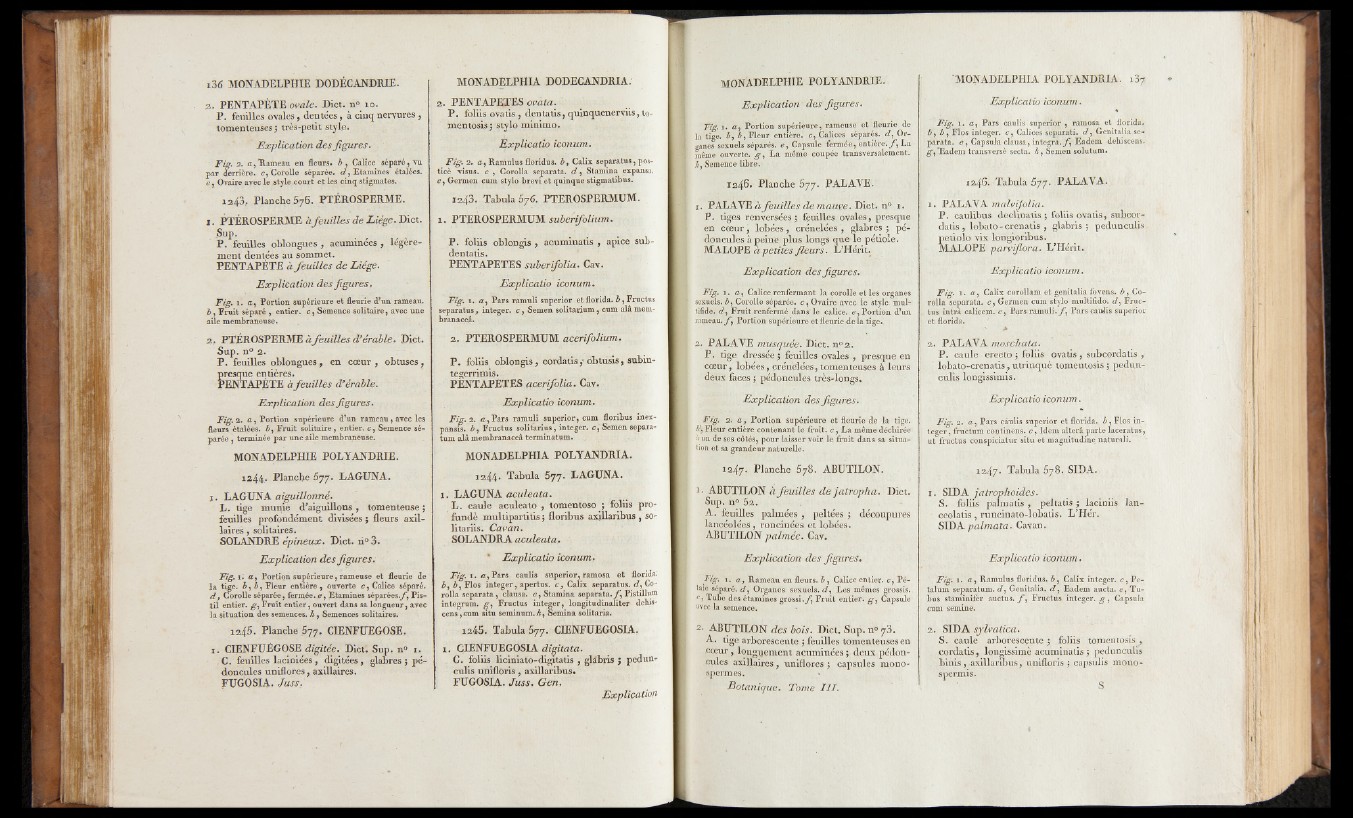 136 MONADELPHIE DODÉCANDRIE.
2. PENTAPÈTE ovale. Dict. n° 10.
P. feuilles ovales, dentées, à cinq nervures,
tomenteuses; très-petit style.
Explication des figures.
Fig. 2. a, Rameau en fleurs. b, Calice séparé, vu
par derrière. c, Corolle séparée. d, Etamines étalées.
e, Ovaire avec le style court et les cinq stigmates.
1243. Planche 576. PTÉROSPERME.
1. PTÉROSPERME à feuilles de Liége. Dict.
Sup.
P. feuilles oblongues, acuminées, légère-
ment dentées au sommet.
PENTAPÈTE à feuilles de Liége.
Explication des figures.
Fig. 1. a, Portion supérieure et fleurie d'un rameau.
b, Fruit séparé, entier. c, Semence solitaire, avec une
aile membraneuse.
2. PTÉROSPERME à feuilles d'érable. Dict.
Sup. n° 2.
P. feuilles oblongues, en cœur, obtuses,
presque entières.
PENTAPÈTE à feuilles d'érable.
Explication des figures.
Fig. 2. a, Portion supérieure d'un rameau, avec les
fleurs étalées. b, Fruit solitaire, entier. c, Semence sé-
parée, terminée par une aile membraneuse.
MONADELPHIE POLYANDRIE.
1244. Planche 577. LAGUNA.
1. LAGUNA aiguillonné.
L. tige munie d'aiguillons, tomenteuse;
feuilles profondément divisées; fleurs axil-
laires, solitaires.
SOLANDRE épineux. Dict. n° 3.
Explication des figures.
Fig. 1. a, Portion supérieure, rameuse et fleurie de
la tige. b, b, Fleur entière, ouverte c, Calice séparé.
d, Corolle séparée, fermée. e, Etamines séparées. f, Pis-
til entier. g, Fruit entier, ouvert dans sa longueur, avec
la situation des semences. h, Semences solitaires.
1245. Planche 577. CIENFUEGOSE.
1. CIENFUÉGOSE digitée. Dict. Sup. n° 1.
C. feuilles laciniées, digitées, glabres; pé-
doncules uniflores, axillaires.
FUGOSIA. Juss.
MONADELPHIA DODECANDRIA.
2. PENTAPETES ovata.
P. foliis ovatis, dentatis, quinquenerviis, to-
mentosis; stylo minimo.
Explicatio iconum.
Fig. 2. a, Ramulus floridus. b, Calix separatus, pos-
ticè visus. c, Corolla separata. d, Stamina expansa.
e, Germen cum stylo brevi et quinque stigmatibus.
1243. Tabula 576. PTEROSPERMUM.
1. PTEROSPERMUM suberifolium.
P. foliis oblongis, acuminatis, apice sub-
dentatis.
PENTAPETES suberifolia. Cav.
Explicatio iconum.
Fig. 1. a, Pars ramuli superior et florida. b, Fructus
separatus, integer. c, Semen solitarium, cum alâ mem-
branaceâ.
2. PTEROSPERMUM acerifolium.
P. foliis oblongis, cordatis, obtusis, subin-
tegerrimis.
PENTAPETES acerifolia. Cav.
Explicatio iconum.
Fig. 2. a, Pars ramuli superior, cum floribus inex-
pansis. b, Fructus solitarius, integer. c, Semen separa-
tum alâ membranaceâ terminatum.
MONADELPHIA POLYANDRIA.
1244. Tabula 577. LAGUNA.
1. LAGUNA aculeata.
L. caule aculeato, tomentoso; foliis pro-
fundè multipartitis; floribus axillaribus, so-
litariis. Cavan.
SOLANDRA aculeata.
Explicatio iconum.
Fig. 1. a, Pars caulis superior, ramosa et florida.
b, b, Flos integer, apertus. c, Calix separatus. d, Co-
rolla separata, clausa. e, Stamina separata. f, Pistillum
integrum. g, Fructus integer, longitudinaliter dehis-
cens, cum situ seminum. h, Semina solitaria.
1245. Tabula 577. CIENFUEGOSIA.
1. CIENFUEGOSIA digitata.
C. foliis liciniato-digitatis, glabris; pedun-
culis unifloris, axillaribus.
FUGOSIA. Juss. Gen.
Explication
MONADELPHIE POLYANDRIE.
Explication des figures.
Fig. 1. a, Portion supérieure, rameuse et fleurie de
la tige. b, b, Fleur entière. c, Calices séparés. d, Or-
ganes sexuels séparés. e, Capsule fermée, entière. f, La
même ouverte. g, La même coupée transversalement.
h, Semence libre.
1246. Planche 577. PALAVE.
1. PALAVE à feuilles de mauve. Dict. n° 1.
P. tiges renversées; feuilles ovales, presque
en cœur, lobées, crénelées, glabres; pé-
doncules à peine plus longs que le pétiole.
MALOPE à petites fleurs. L'Hérit.
Explication des figures.
Fig. 1. a, Calice renfermant la corolle et les organes
sexuels. b, Corolle séparée. c, Ovaire avec le style mul-
tifide. d, Fruit renfermé dans le calice. e, Portion d'un
rameau. f, Portion supérieure et fleurie de la tige.
2. PALAVE musquée. Dict. n° 2.
P. tige dressée; feuilles ovales, presque en
cœur, lobées, crénelées, tomenteuses à leurs
deux faces; pédoncules très-longs.
Explication des figures.
Fig. 2. a, Portion supérieure et fleurie de la tige.
b, Fleur entière contenant le fruit. c, La même déchirée
à un de ses côtés, pour laisser voir le fruit dans sa situa-
tion et sa grandeur naturelle.
1247. Planche 578. ABUTILON.
1. ABUTILON à feuilles de jatropha. Dict.
Sup. n° 52.
A. feuilles palmées, peltées; découpures
lancéolées, roncinées et lobées.
ABUTILON palmée. Cav.
Explication des figures.
Fig. 1. a, Rameau en fleurs. b, Calice entier. c, Pé-
tale séparé. d, Organes sexuels. d, Les mêmes grossis.
e, Tube des étamines grossi. f, Fruit entier. g, Capsule
avec la semence.
2. ABUTILON des bois. Dict. Sup. n° 73.
A. tige arborescente; feuilles tomenteuses en
cœur, longuement acuminées; deux pédon-
cules axillaires, uniflores; capsules mono-
spermes.
Botanique. Tome III.
MONADELPHIA POLYANDRIA. 137
Explicatio iconum.
Fig. 1. a, Pars caulis superior, ramosa et florida.
b, b, Flos integer. c, Calices separati. d, Genitalia se-
parata. e, Capsula clausa, integra. f, Eadem dehiscens.
g, Eadem transversè secta. h, Semen solutum.
1246. Tabula 577. PALAVA.
1. PALAVA malvifolia.
P. caulibus declinatis; foliis ovatis, subcor-
datis, lobato-crenatis, glabris; pedunculis
petiolo vix longioribus.
MALOPE parviflora. L'Hérit.
Explicatio iconum.
Fig. 1. a, Calix corollam et genitalia fovens. b, Co-
rolla separata. c, Germen cum stylo multifido. d, Fruc-
tus intrà calicem. e, Pars ramuli. f, Pars caulis superior
et florida.
2. PALAVA moschata.
P. caule erecto; foliis ovatis, subcordatis,
lobato-crenatis, utrinquè tomentosis; pedun-
culis longissimis.
Explicatio iconum.
Fig. 2. a, Pars caulis superior et florida. b, Flos in-
teger, fructum continens. c, Idem alterâ parte laceratus,
ut fructus conspiciatur situ et magnitudine naturali.
1247. Tabula 578. SIDA.
1. SIDA jatrophoides.
S. foliis palmatis, peltatis; laciniis lan-
ceolatis, runcinato-lobatis. L'Hér.
SIDA palmata. Cavan.
Explicatio iconum.
Fig. 1. a, Ramulus floridus. b, Calix integer. c, Pe-
talum separatum. d, Genitalia. d, Eadem aucta. e, Tu-
bus staminifer auctus. f, Fructus integer. g, Capsula
cum semine.
2. SIDA sylvatica.
S. caule arborescente; foliis tomentosis,
cordatis, longissimè acuminatis; pedunculis
binis, axillaribus, unifloris; capsulis mono-
spermis.
S